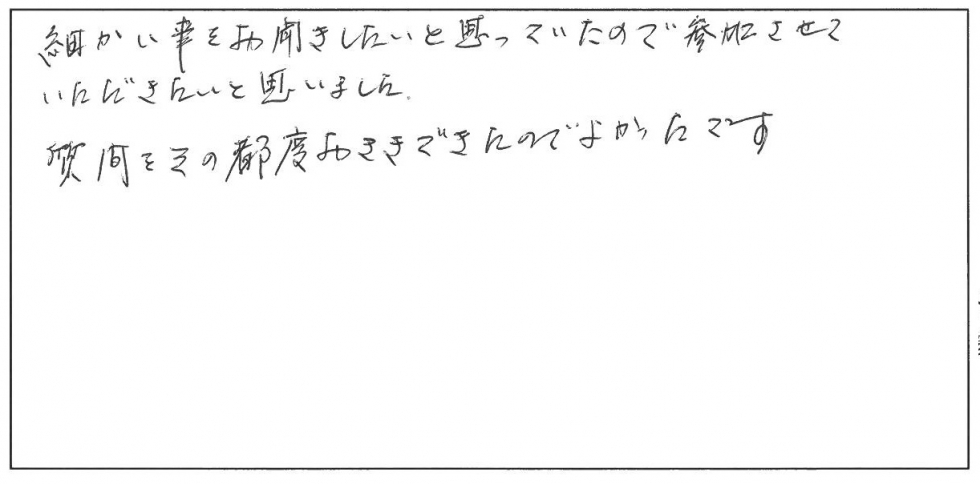 細かい事をお聞きしたいと思っていたので参加させて
いただきたいと思いました。
質問をその都度おききできたのでよかったです